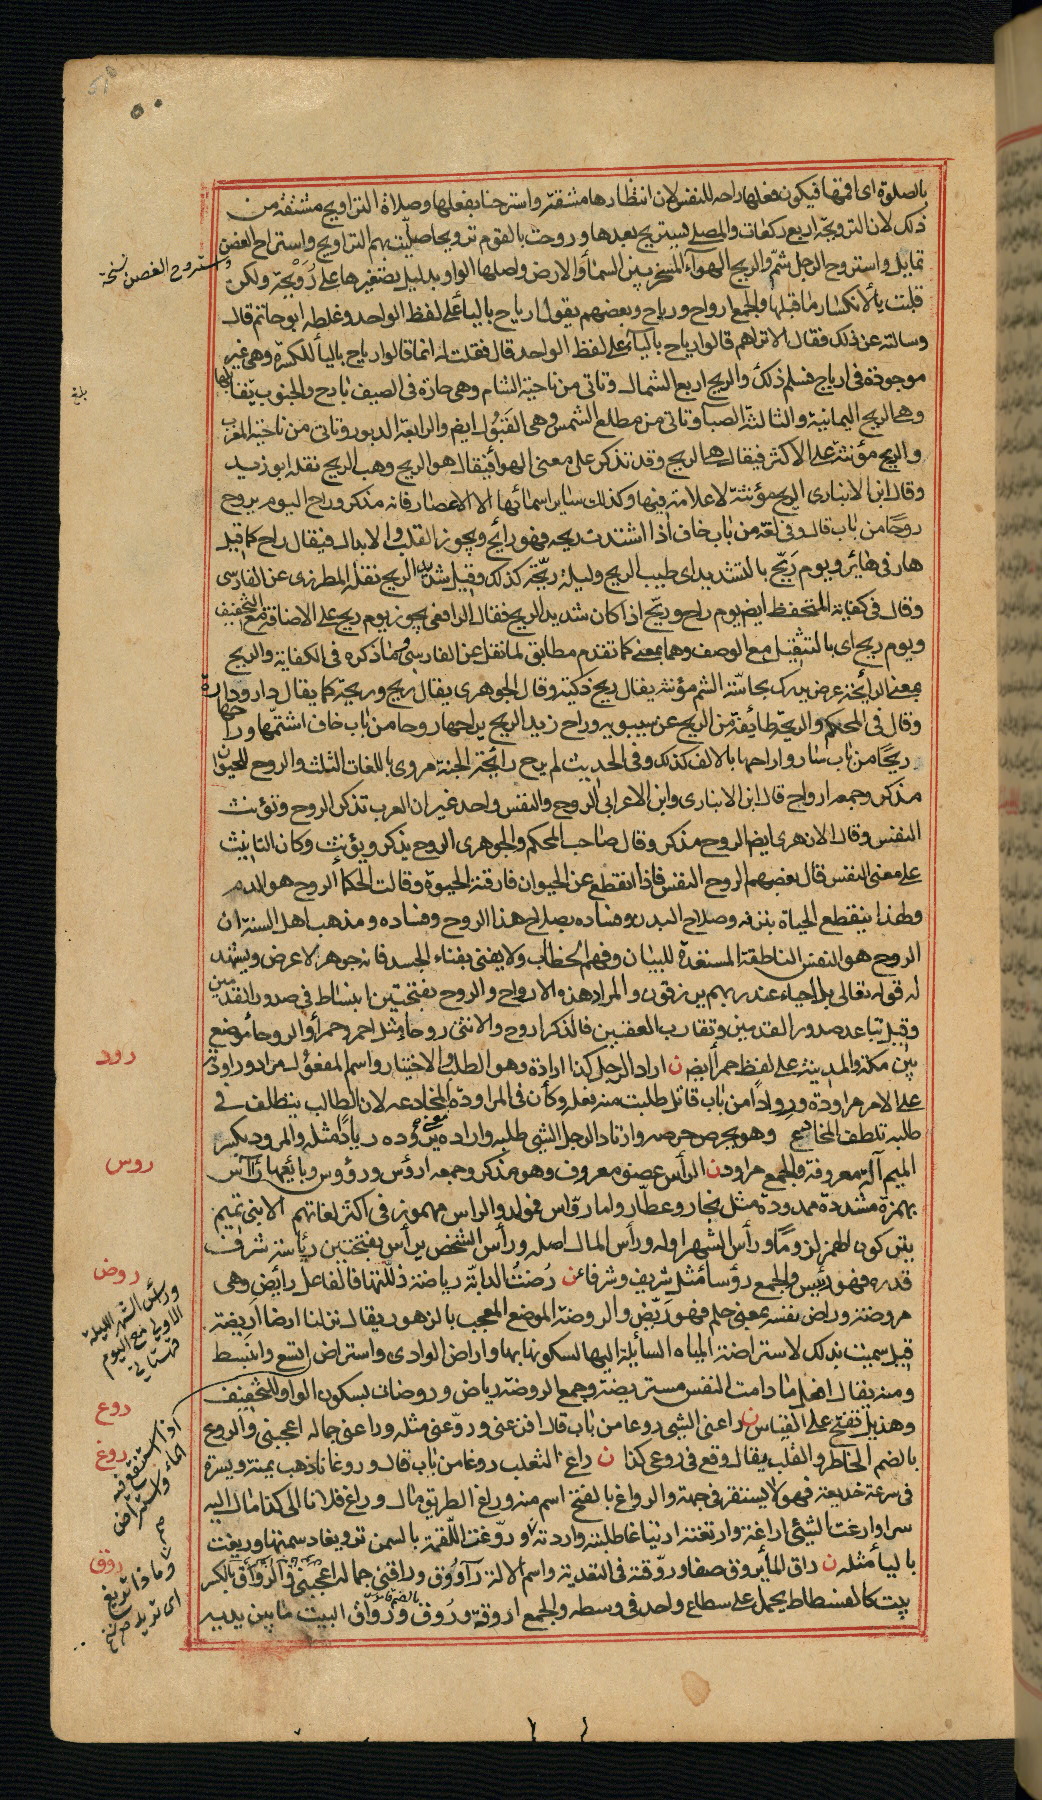 ٥٠
بالصلوة اى اقمها فيكون فعلها راحة للنفس لان انتظارها مشقة واسترحنا بفعلها وصلاة التراويح مشتقة من
ذلك لان الترويحة اربع ركعات والمصلى يستريح بعدها وروحت بالقوم ترويحا صليت بهم التراويح واستراح الغصن
تمايل واستروح الرجل شم والريح الهواء المسخر بين السماء والارض واصلها الواو بدليل تصغيرها على رُوَيْحة ولكن
قلبت ياء لانكسار ما قبلها والجمع ارواح ورياح وبعضهم يقول ارياح بالياء على لفظ الواحد وغلطه ابو حاتم قال
وسالته عن ذلك فقال الا تراهم قالوا رياح بالياء على لفظ الواحد قال فقلت له انما قالوا رياح بالياء للكسرة وهى غير
موجودة فى ارياح فسلم ذلك والريح اربع الشمال وتاتى من ناحية الشام وهى حارة فى الصيف بارح والجنوب تقابلها
وهى الريح اليمانية والثالثة الصبا وتاتى من مطلع الشمس وهى القَبُول ايضا والرابعة الدبور وتاتى من ناحية المغرب
والريح مؤنثة على الاكثر فيقال هى الريح وقد تذكر على معنى الهواء فيقال هو الريح وهب الريح نقله ابو زيد
وقال ابن الانبارى الريح مؤنثة لا علامة فيها وكذلك سائر اسمائها الا الاعصار فانه مذكر وراح اليوم يروح
روحًا من باب قال وفى لغة من باب خاف اذا اشتدت ريحه فهو رائح ويجوز القلب والابدال فيقال راح كما قيل
هار فى هائر ويوم ريّح بالتشديد اى طيب الريح وليلة ريّحة كذلك وقيل شديد الريح نقله المطرزى عن الفارسى
وقال فى كفاية المتحفظ ايضا يوم راح وريّح اذا كان شديد الريح فقال الرافعى يجوز يوم ريح على الاضافة مع التخفيف
ويوم ريح اى بالتثقيل مع الوصف وهما بمعنى كما تقدم مطابق لما نقل عن الفارسى وما ذكره فى الكفاية والريح
بمعنى الرائحة عرض يدرك بحاسة الشم مؤنثة يقال ريح ذكية وقال الجوهرى يقال ريح وريحة كما يقال دار ودارة
وقال فى المحكم والريحة طايفة من الريح عن سيبويه وراح زيد الريح يراحها روحا من باب خاف اشتمّها وراحها
ريحًا من باب سار واراحها بالالف كذلك وفى الحديث لم يرح رائحة الجنة مروى باللغات الثلث والروح للحيوان
مذكر وجمعه ارواح قال ابن الانبارى وابن الاعرابى الروح والنفس واحد غير ان العرب تذكر الروح وتؤنث
النفس وقال الازهرى ايضا الروح مذكر وقال صاحب المحكم والجوهرى الروح يذكر ويؤنث وكان التانيث
على معنى النفس قال بعضهم الروح النفس فاذا انقطع عن الحيوان فارقته الحيوة وقالت الحكماء الروح هو الدم
ولهذا ينقطع الحياة بنزفه وصلاح البدن وفساده بصلاح هذا الروح وفساده ومذهب اهل السنة ان
الروح هو النفس الناطقة المستعدة للبيان وفهم الخطاب ولا يفنى بفناء الجسد فانه جوهر لا عرض ويشهد
له قوله تعالى بل احياء عند ربهم يرزقون والمراد هذه الارواح والروح بفتحتين انبساط فى صدور القدمين
وقيل تباعد صدور القدمين وتقارب العقبين فالذكر اروح والانثى روحاء مثل احمر وحمراء والروحاء موضع
بين مكة والمدينة على لفظ حمراء ايضا ن اراد الرجل كذا ارادة وهو الطلب والاختيار واسم المفعول مراد وراودته
على الامر مراودة وروادًا من باب قاتل طلبت منه فعله وكأن فى المراودة المخادعة لان الطالب يتطلف فى
طلبه تلطف المخادع وهو يحرص حرصه وارتاد الرجل الشيئ طلبه واراده يروده ريادًا مثله والمرود بكسر
الميم آلة معروفة والجمع مراود ن الرأس عضو معروف وهو مذكر وجمعه ارؤس ورؤوس وبائعها رآّس
بهمزة مشددة ممدودة مثل نجار وعطار واما روّاس فمولد والراس مهموز فى اكثر لغاتهم الا بنى تميم
يتركون الهمز لزومًا ورأس الشهر اوله ورأس المال اصله ورأس الشخص يرأس بفتحتين رئاسة شرف
قدره فهو رئيس والجمع رؤساء مثل شريف وشرفاء ن رُضتُ الدابة رياضة ذللتها فالفاعل رايض وهى
مروضة وراض نفسه بمعنى حلم فهو ريّض والروضة الموضع المعجب بالزهور يقال نزلنا ارضا اريضة
قيل سميت بذلك لاستراضة المياه السائلة اليها لسكونها بها واراض الوادى واستراض اتسع وانبسط
ومنه يقال افعل ما دامت النفس مستريضة وجمع الروضة رياض وروضات بسكون الواو للتخفيف
وهذيل تفتح على القياس ن راعنى الشيئ روعا من باب قال افزعنى وروّعنى مثله وراعنى جماله اعجبنى والروع
بالضم الخاطر والقلب يقال وقع فى روعى كذا ن راغ الثعلب روغا من باب قال وروغانا ذهب يمنة ويسرة
فى سرعة خديعة فهو لا يستقر فى جهة والرواغ بالفتح اسم منه وراغ الطريق مال وراغ فلان الى كذا مال اليه
سرا واراغت الشيئ اراغة وارتغته ارتياغا طلبته واردته وروّغت اللقمة بالسمن ترويغا دسمتها وريغت
بالياء مثله ن راق الماء يروق صفا وروّقته فى التعدية واسم الالة رآووق وراقنى جماله اعجبنى والرواق بالكسر
بيت كالفسطاط يحمل على سطاع واحد فى وسطه والجمع اروقة ورُوق ورواق البيت ما بين يديه
واستروح الغصن نسخة
بلغ
رود
روس
روض
ورأس الشهر الليلة
الاولى مع اليوم
قهستانى
روع
اذا استنقع فيه
الماء واستراض
روغ
روق
وما ذا تريغ
اى تريد